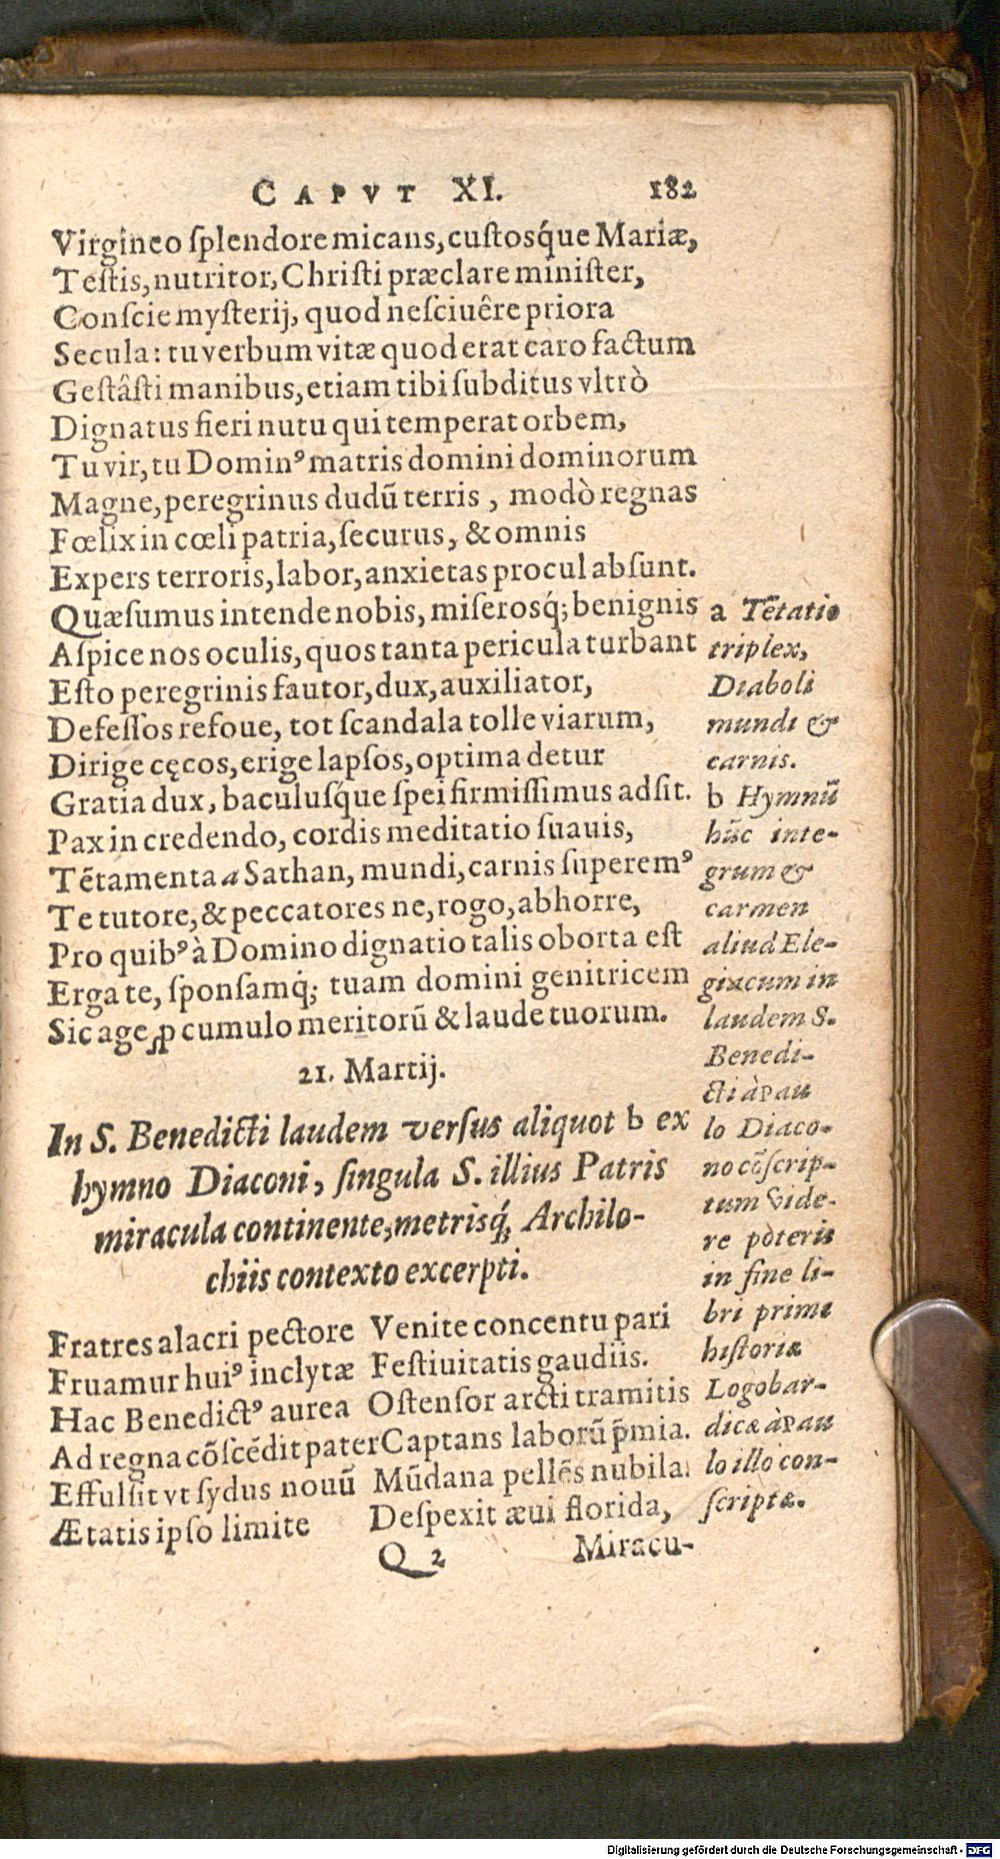 CAPVT XI. 182
Virgineo ſplendore micans, cuſtosq́ue Mariæ,
Teſtis, nutritor, Chriſti præclare miniſter,
Conſcie myſterij, quod neſciuêre priora
Secula: tu verbum vitæ quod erat caro factum
Geſtâſti manibus, etiam tibi ſubditus vltrò
Dignatus fieri nutu qui temperat orbem,
Tu vir, tu Dominꝰ matris domini dominorum
Magne, peregrinus dudũ terris, modò regnas
Fœlix in cœli patria, ſecurus, & omnis
Expers terroris, labor, anxietas procul abſunt.
Quæſumus intende nobis, miſerosq́; benignis
Aſpice nos oculis, quos tanta pericula turbant
Eſto peregrinis fautor, dux, auxiliator,
Defeſſos refoue, tot ſcandala tolle viarum,
Dirige cęcos, erige lapſos, optima detur
Gratia dux, baculusq́ue ſpei firmiſſimus adſit.
Pax in credendo, cordis meditatio ſuauis,
Tẽtamenta a Sathan, mundi, carnis ſuperemꝰ
Te tutore, & peccatores ne, rogo, abhorre,
Pro quibꝰ à Domino dignatio talis oborta eſt
Erga te, ſponſamq́; tuam domini genitricem
Sic age ꝓ cumulo meritorũ & laude tuorum.
21. Martij.
In S. Benedicti laudem verſus aliquot b ex
hymno Diaconi, ſingula S. illius Patris
miracula continente, metrisq́; Archilo-
chiis contexto excerpti.
Fratres alacri pectore Venite concentu pari
Fruamur huiꝰ inclytæ Feſtiuitatis gaudiis.
Hac Benedictꝰ aurea Oſtenſor arcti tramitis
Ad regna cõſcẽdit pater Captans laborũ p̃mia.
Effulſit vt ſydus nouũ Mũdana pellẽs nubila
Ætatis ipſo limite Deſpexit æui florida,
Q 2 Miracu-
a Tẽtatio
triplex,
Diaboli
mundi &
carnis.
b Hymnũ
hũc inte-
grum &
carmen
aliud Ele-
giacum in
laudem S.
Benedi-
cti à Pau
lo Diaco-
no cõſcrip-
tum vide-
re poteris
in fine li-
bri primi
hiſtoriæ
Logobar-
dicæ à Pau
lo illo con-
ſcriptæ.
Digitalisierung gefördert durch die Deutsche Forschungsgemeinschaft - DFG